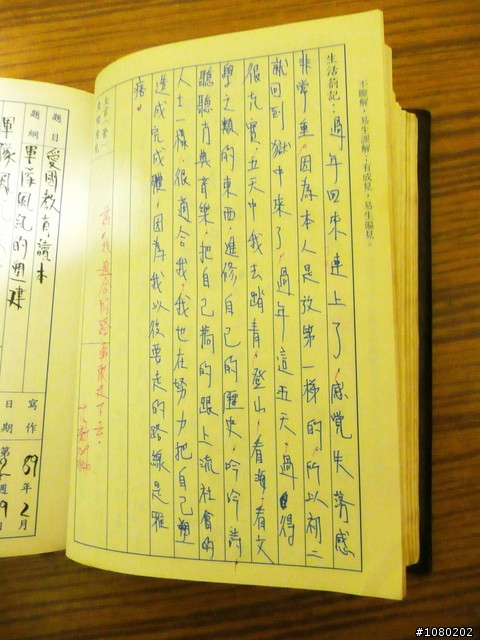 不瞭解，易生誤解，有成見，易生偏見。
生活箚記：過年回來，連上了，感覺失落感
非常重，因為本人是放第一梯的，所以初二
就回到獄中來了，過年這五天，過得
很充實，五天中我去踏青，登山，看海，看文
學之類的東西，進修自己的歷史，吟吟詩，
聽聽古典音樂，把自己搞的跟上流社會的
人士一樣，很適合我，我也在努力把自己塑
造成完成體，因為我以後要走的路線是雅
痞。
題目 愛國教育讀本
題綱 軍隊風紀的塑建
寫作日期
89年2月
#1080202